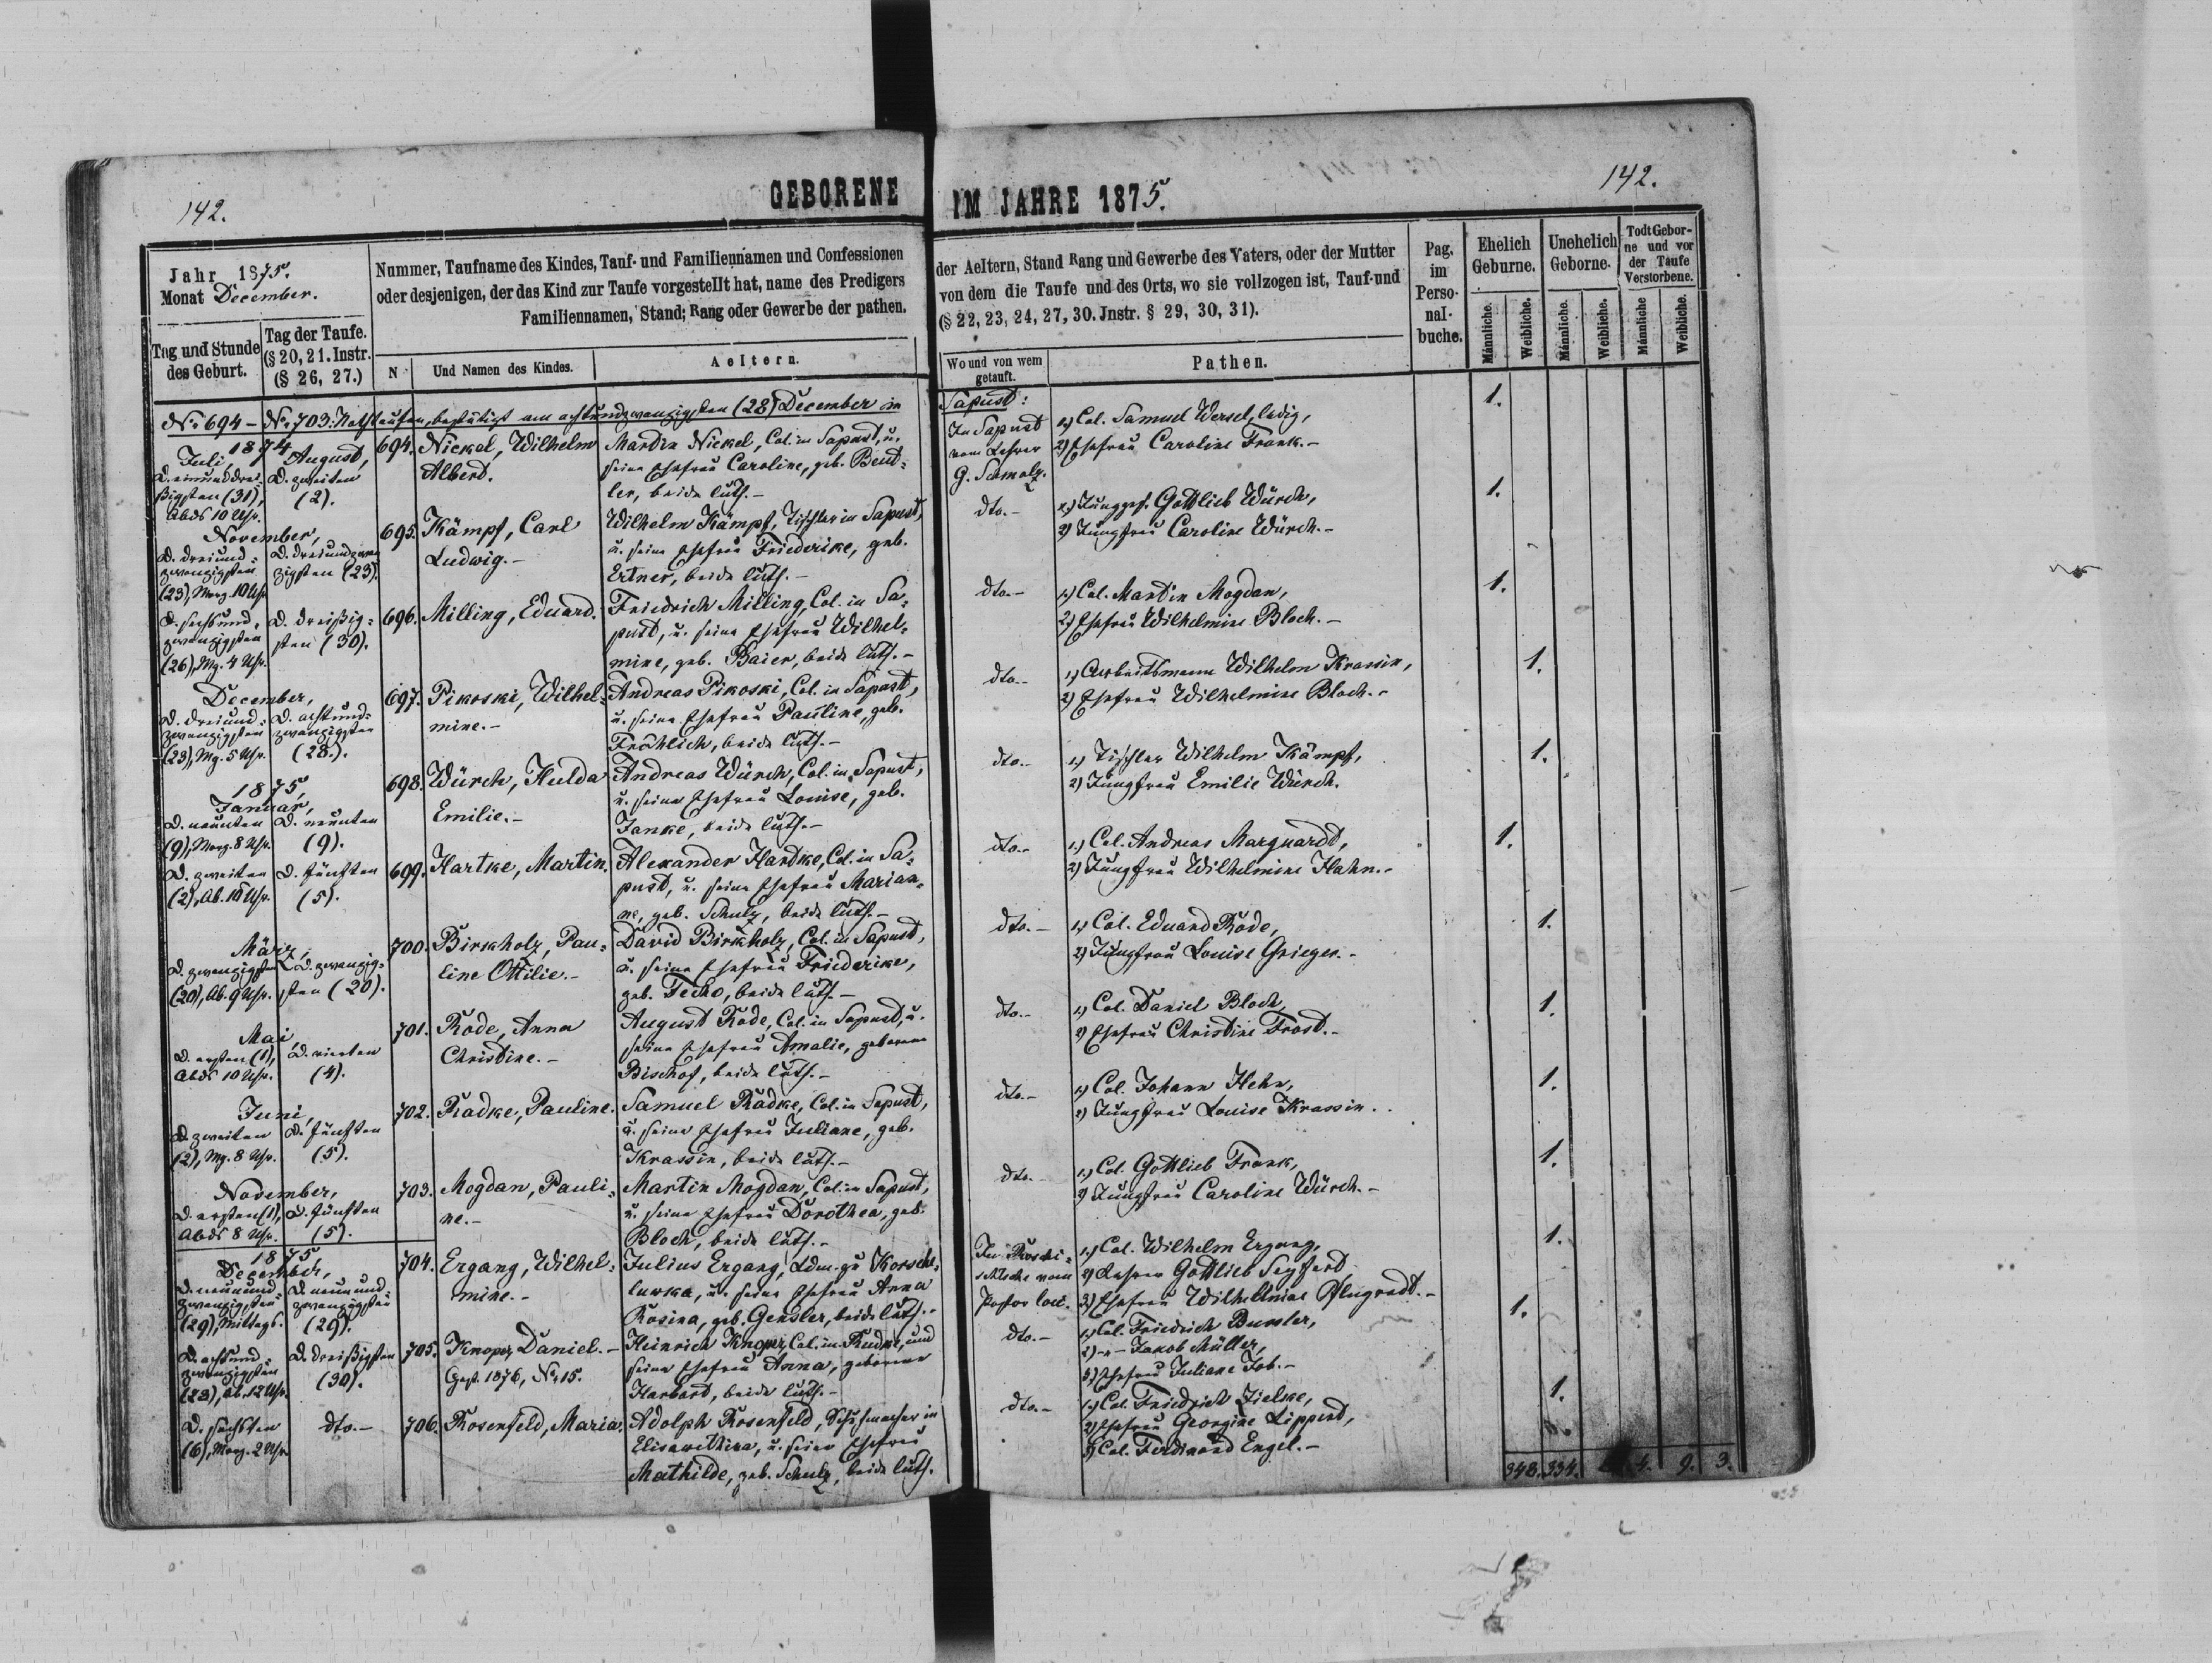 142.
GEBORENE
IM JAHRE 1875.
142.
Jahr 1875.
Monat December.
Tag und Stunde des Geburt.
Tag der Taufe.
(§ 20, 21. Instr.
(§ 26, 27.)
Nummer, Taufname des Kindes, Tauf- und Familiennamen und Confessionen
oder desjenigen, der das Kind zur Taufe vorgestellt hat, name des Predigers
Familiennamen, Stand; Rang oder Gewerbe der pathen.
N
Und Namen des Kindes.
Aeltern.
der Aeltern, Stand Rang und Gewerbe des Vaters, oder der Mutter
von dem die Taufe und des Orts, wo sie vollzogen ist, Tauf-und
(§ 22, 23, 24, 27, 30. Jnstr. § 29, 30, 31).
Wo und von wem
getauft.
Pathen.
Pag.
im
Perso-
nal-
buche.
Ehelich
Geburne.
Unehelich
Geborne.
Todt Gebor-
ne und vor
der Taufe
Verstorbene.
Männliche.
Weibliche.
Männliche.
Weibliche.
Männliche
Weibliche.
No 694 – No 703: Nothtaufen, bestätigt am achtundzwanzigsten (28) December in
Sapust:
1874
Juli,
August,
D. einunddrei-
ßigsten (31),
Abds 10 Uhr.
D. zweiten
(2).
694. Nickel, Wilhelm
Albert.
Martin Nickel, Col. in Sapust, u.
seine Ehefrau Caroline, geb. Beut-
ler, beide luth. –
In Sapust
vom Lehrer
G. Schmalz.
1) Col. Samuel Wersel, ledig,
2) Ehefrau Caroline Frank. –
1.
November,
D. dreiund-
zwanzigsten
(23), Morg. 10 Uhr
D. dreiundzwan
zigsten (23).
695. Kämpf, Carl
Ludwig. –
Wilhelm Kämpf, Tischler in Sapust,
u. seine Ehefrau Friederike, geb.
Ertner, beide luth. –
dto. –
1) Junggs. Gottlieb Würch,
2) Jungfrau Caroline Würch. –
1.
D. sechsund-
zwanzigsten
(26), Mg. 4 Uhr.
D. dreißig-
sten (30).
696. Milling, Eduard.
Friedrich Milling, Col. in Sa-
pust, u. seine Ehefrau Wilhel-
mine, geb. Baier, beide luth. –
dto. –
1) Col. Martin Mogdan,
2) Ehefrau Wilhelmine Bloch. –
1.
December,
D. dreiund-
zwanzigsten
(23), Mg. 5 Uhr.
D. achtund-
zwanzigsten
(28.).
697. Pikoski, Wilhel-
mine. –
Andreas Pikoski, Col. in Sapust,
u. seine Ehefrau Pauline, geb.
Fröhlich, beide luth. –
dto. –
1) Arbeitsmann Wilhelm Krassin,
2) Ehefrau Wilhelmine Bloch. –
1.
1875,
Januar,
D. neunten
(9), Morg. 8 Uhr.
D. neunten
(9).
698. Würch, Hulda
Emilie. –
Andreas Würch, Col. in Sapust,
u. seine Ehefrau Louise, geb.
Janke, beide luth. –
dto. –
1) Tischler Wilhelm Kämpf,
2) Jungfrau Emilie Würch.
1.
D. zweiten
(2), Ab. 10 Uhr.
D. fünften
(5).
699. Hartke, Martin.
Alexander Hardke, Col. in Sa-
pust, u. seine Ehefrau Marian-
ne, geb. Schulz, beide luth. –
dto. –
1) Col. Andreas Marquardt,
2) Jungfrau Wilhelmine Hahn. –
1.
März,
D. zwanzigsten
(20), Ab. 9 Uhr.
D. zwanzig-
sten (20).
700. Birkholz, Pau-
line Ottilie. –
David Birkholz, Col. in Sapust,
u. seine Ehefrau Friederike,
geb. Techo, beide luth. –
dto. –
1) Col. Eduard Rode,
2) Jungfrau Louise Grieger. –
1.
Mai,
D. ersten (1),
Abds 10 Uhr.
D. vierten
(4).
701. Rode, Anna
Christine. –
August Rode, Col. in Sapust, u.
seine Ehefrau Amalie, geborene
Bischof, beide luth. –
dto. –
1) Col. Daniel Bloch,
2) Ehefrau Christine Frost. –
1.
Juni,
D. zweiten
(2), Mg. 8 Uhr.
D. fünften
(5).
702. Radke, Pauline.
Samuel Radke, Col. in Sapust,
u. seine Ehefrau Juliane, geb.
Krassin, beide luth. –
dto. –
1) Col. Johann Hehn,
2) Jungfrau Louise Krassin.
1.
November,
D. ersten (1),
Abds 8 Uhr.
D. fünften
(5).
703. Mogdan, Pauli-
ne. –
Martin Mogdan, Col. in Sapust,
u. seine Ehefrau Dorothea, geb.
Bloch, beide luth. –
dto. –
1) Col. Gottlieb Frank,
2) Jungfrau Caroline Würch. –
1.
1875,
December,
D. neunund-
zwanzigsten
(29), Mittags.
D. neunund-
zwanzigsten
(29).
704. Ergang, Wilhel-
mine. –
Julius Ergang, Ldm. zu Korsch-
luwka, u. seine Ehefrau Anna
Rosina, geb. Gensler, beide luth. –
Pastor loci.
1) Col. Wilhelm Ergang,
2) Lehrer Gottlieb Seyferd
3) Ehefrau Wilhelmine Pflugradt. –
1.
D. achtund-
zwanzigsten
(28), Ab. 12 Uhr.
D. dreißigsten
(30).
705. Knopp, Daniel. –
Gest. 1876, No 15.
Heinrich Knopp, Col. in Rudni, und
seine Ehefrau Anna, geborene
Harbart, beide luth. –
dto. –
1) Col. Friedrich Bussler,
2) –"– Jakob Müller,
3) Ehefrau Juliane Job. –
1.
D. sechsten
(6), Morg. 2 Uhr
dto. –
706. Rosenfeld, Maria.
Adolph Rosenfeld, Schuhmacher in
Elisawethina, u. seine Ehefrau
Mathilde, geb. Schulz, beide luth.
dto. –
1) Col. Friedrich Zielke,
2) Ehefrau Georgine Lippert,
3) Col. Ferdinand Engel. –
1.
348. 334. 4. 9. 3.